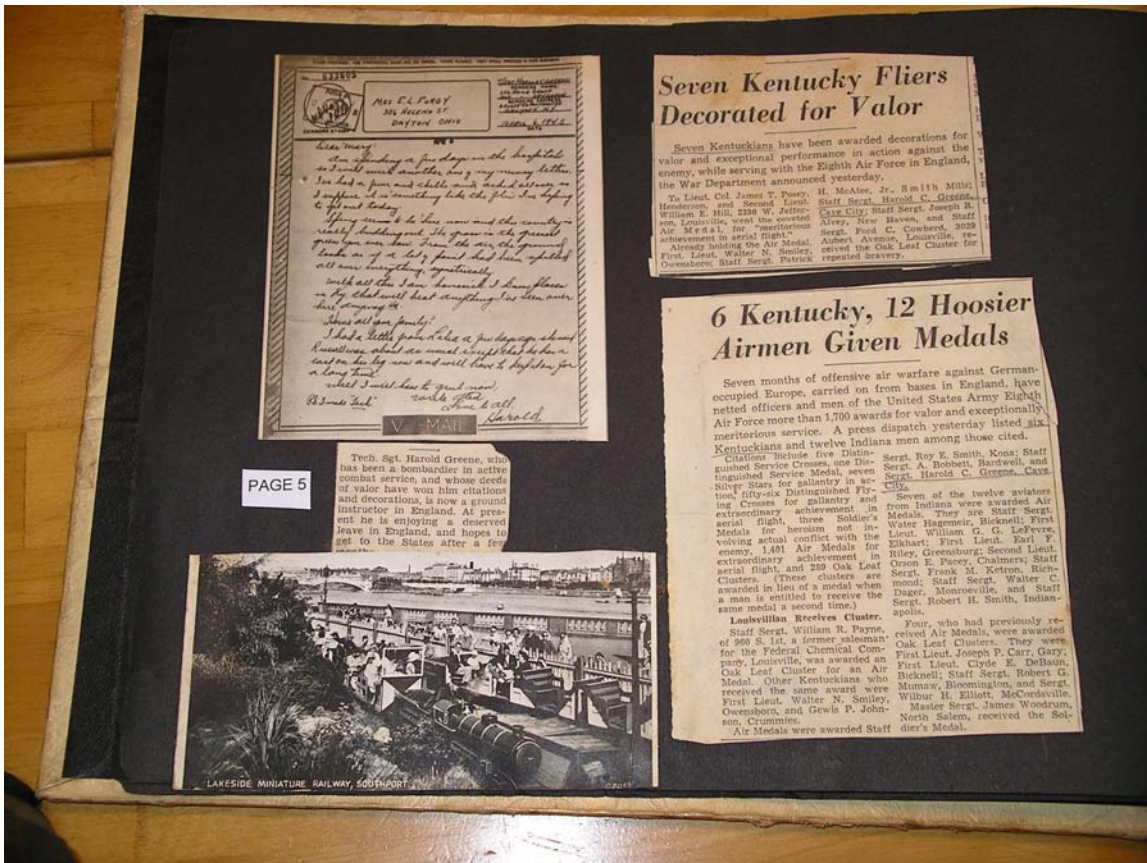 No.
MRS E.L. FURDY
306 HELENA ST.
DAYTON OHIO
SENDER'S NAME
SENDER'S ADDRESS
APRIL 6, 1943
DATE
Dear Mary:
Am spending a few days in the hospital
so I will write another one of my newsy letters.
I've had a fever and chills and ached all over so
I suppose it is something like the flu. I'm hoping
to get out today.
Spring seems to be here now and the country is
really budding out. The grass is the greenest
green you ever saw. From the air the ground
looks as if a lady paint had been spilled
all over everything,
With all this I am homesick. I know places
in Ky. that will beat anything I've seen over
here anyway.
How's all your family?
I had a letter from a few days ago she said
Russell was about as usual except that he has a
cast on his leg now and will have to keep it on for
a long time.
Well I will have to quit now.
Write often
Love to all,
Harold
PS I made "Tech"
V - MAIL
PAGE 5
Tech. Sgt. Harold Greene, who
has been a bombardier in active
combat service, and whose deeds
of valor have won him citations
and decorations, is now a ground
instructor in England. At pres-
ent he is enjoying a deserved
leave in England, and hopes to
get to the States after a few
LAKESIDE MINIATURE RAILWAY, SOUTHPORT
Seven Kentucky Fliers
Decorated for Valor
Seven Kentuckians have been awarded decorations for
valor and exceptional performance in action against the
enemy, while serving with the Eighth Air Force in England,
the War Department announced yesterday.
To Lieut. Col. James T. Posey,
Henderson, and Second Lieut.
William E. Hill, 2330 W. Jeffer-
son, Louisville, went the coveted
Air Medal, for "meritorious
achievement in aerial flight."
Already holding the Air Medal,
First. Lieut. Walter N. Smiley,
Owensboro; Staff Sergt. Patrick
H. McAtee, Jr., Smith Mills;
Staff Sergt. Harold C. Greene,
Cave City; Staff Sergt. Joseph R.
Alvey, New Haven, and Staff
Sergt. Ford C. Cowherd, 3029
Aubert Avenue, Louisville, re-
ceived the Oak Leaf Cluster for
repeated bravery.
6 Kentucky, 12 Hoosier
Airmen Given Medals
Seven months of offensive air warfare against German-
occupied Europe, carried on from bases in England, have
netted officers and men of the United States Army Eighth
Air Force more than 1,700 awards for valor and exceptionally
meritorious service. A press dispatch yesterday listed six
Kentuckians and twelve Indiana men among those cited.
Citations include five Distin-
guished Service Crosses, one Dis-
tinguished Service Medal, seven
Silver Stars for gallantry in ac-
tion, fifty-six Distinguished Fly-
ing Crosses for gallantry and
extraordinary achievement in
aerial flight, three Soldier's
Medals for heroism not in-
volving actual conflict with the
enemy, 1,401 Air Medals for
extraordinary achievement in
aerial flight, and 289 Oak Leaf
Clusters. (These clusters are
awarded in lieu of a medal when
a man is entitled to receive the
same medal a second time.)
Louisvillian Receives Cluster.
Staff Sergt. William R. Payne,
of 960 S. 1st, a former salesman
for the Federal Chemical Com-
pany, Louisville, was awarded an
Oak Leaf Cluster for an Air
Medal. Other Kentuckians who
received the same award were
First Lieut. Walter N. Smiley,
Owensboro, and Gewis P. John-
son, Crummies.
Air Medals were awarded Staff
Sergt. Roy E. Smith, Kona; Staff
Sergt. A. Bobbett, Bardwell, and
Sergt. Harold C. Greene, Cave
City.
Seven of the twelve aviators
from Indiana were awarded Air
Medals. They are Staff Sergt.
Water Hagemeir, Bicknell; First
Lieut. William G. G. LeFevre,
Elkhart; First Lieut. Earl F.
Riley, Greensburg; Second Lieut.
Orson E. Pacey, Chalmers; Staff
Sergt. Frank M. Ketron, Rich-
mond; Staff Sergt. Walter C.
Dager, Monroeville, and Staff
Sergt. Robert H. Smith, Indian-
apolis.
Four, who had previously re-
ceived Air Medals, were awarded
Oak Leaf Clusters. They were
First Lieut. Joseph P. Carr, Gary;
First Lieut. Clyde E. DeBaun,
Bicknell; Staff Sergt. Robert G.
Mumaw, Bloomington, and Sergt.
Wilbur H. Elliott, McCordsville.
Master Sergt. James Woodrum,
North Salem, received the Sol-
dier's Medal.